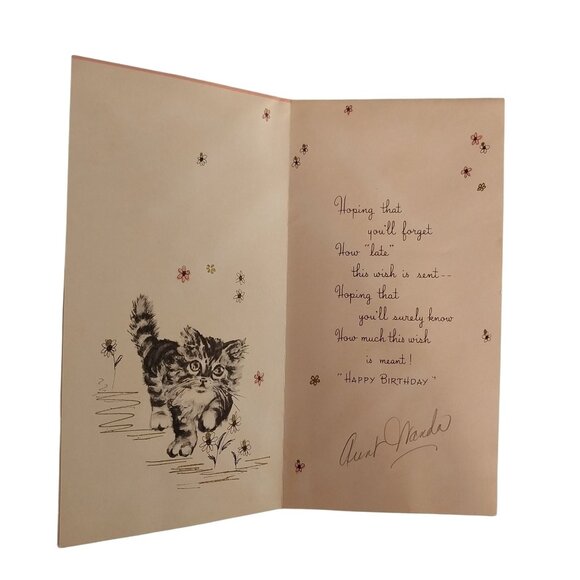 Hoping that
you'll forget
How "late"
this wish is sent--
Hoping that
you'll surely know
How much this wish
is meant!
"HAPPY BIRTHDAY"
Aunt Wanda